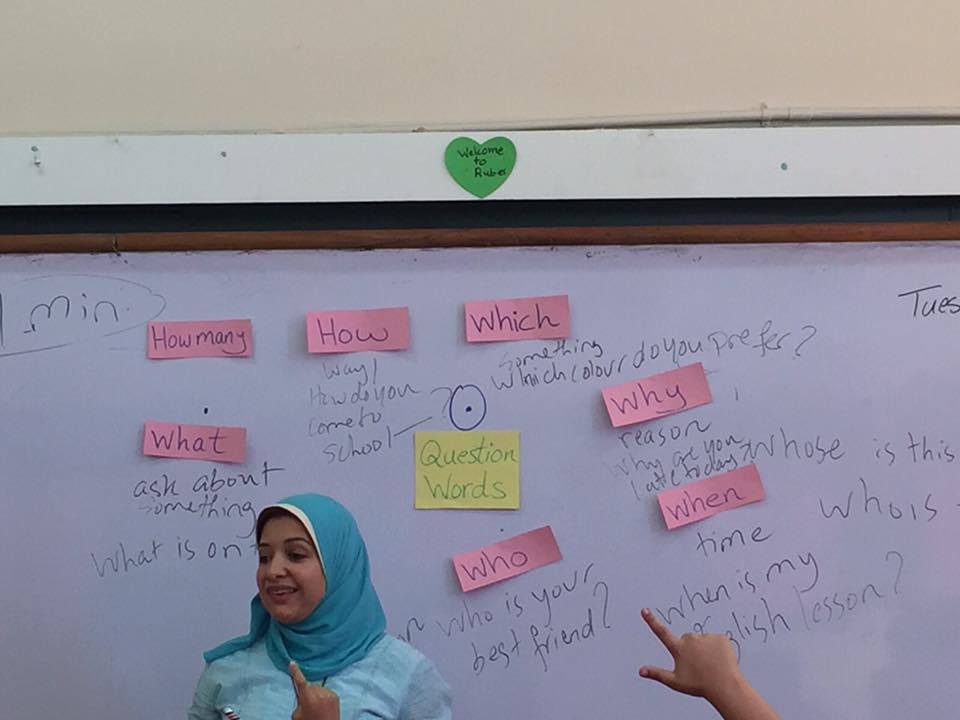 Welcome
to
Rubes
1 min.
Tues
How many
How
way/
How do you
come to
school
?
Which
something
Which colour do you prefer?
Why
reason
Why are you
late today
Whose is this
who is
What
ask about
something
What is on
Question
Words
When
time
When is my
lesson?
Who
Who is your
best friend?